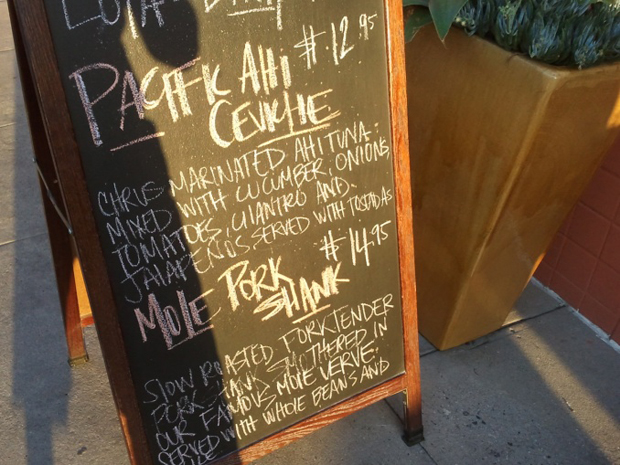 PACIFIC AHI # 12.95
CEVICHE
MARINATED AHI TUNA.
MIXED WITH CUCUMBER, ONIONS,
TOMATOES, CILANTRO AND.
JALAPENOS SERVED WITH TOSTADAS
# 14.95
MOLE PORK
SHANK
SLOW ROASTED FORKTENDER
PORK SHANK SMOTHERED IN
OUR FAMOUS MOLE VERVE.
SERVED WITH WHOLE BEANS AND